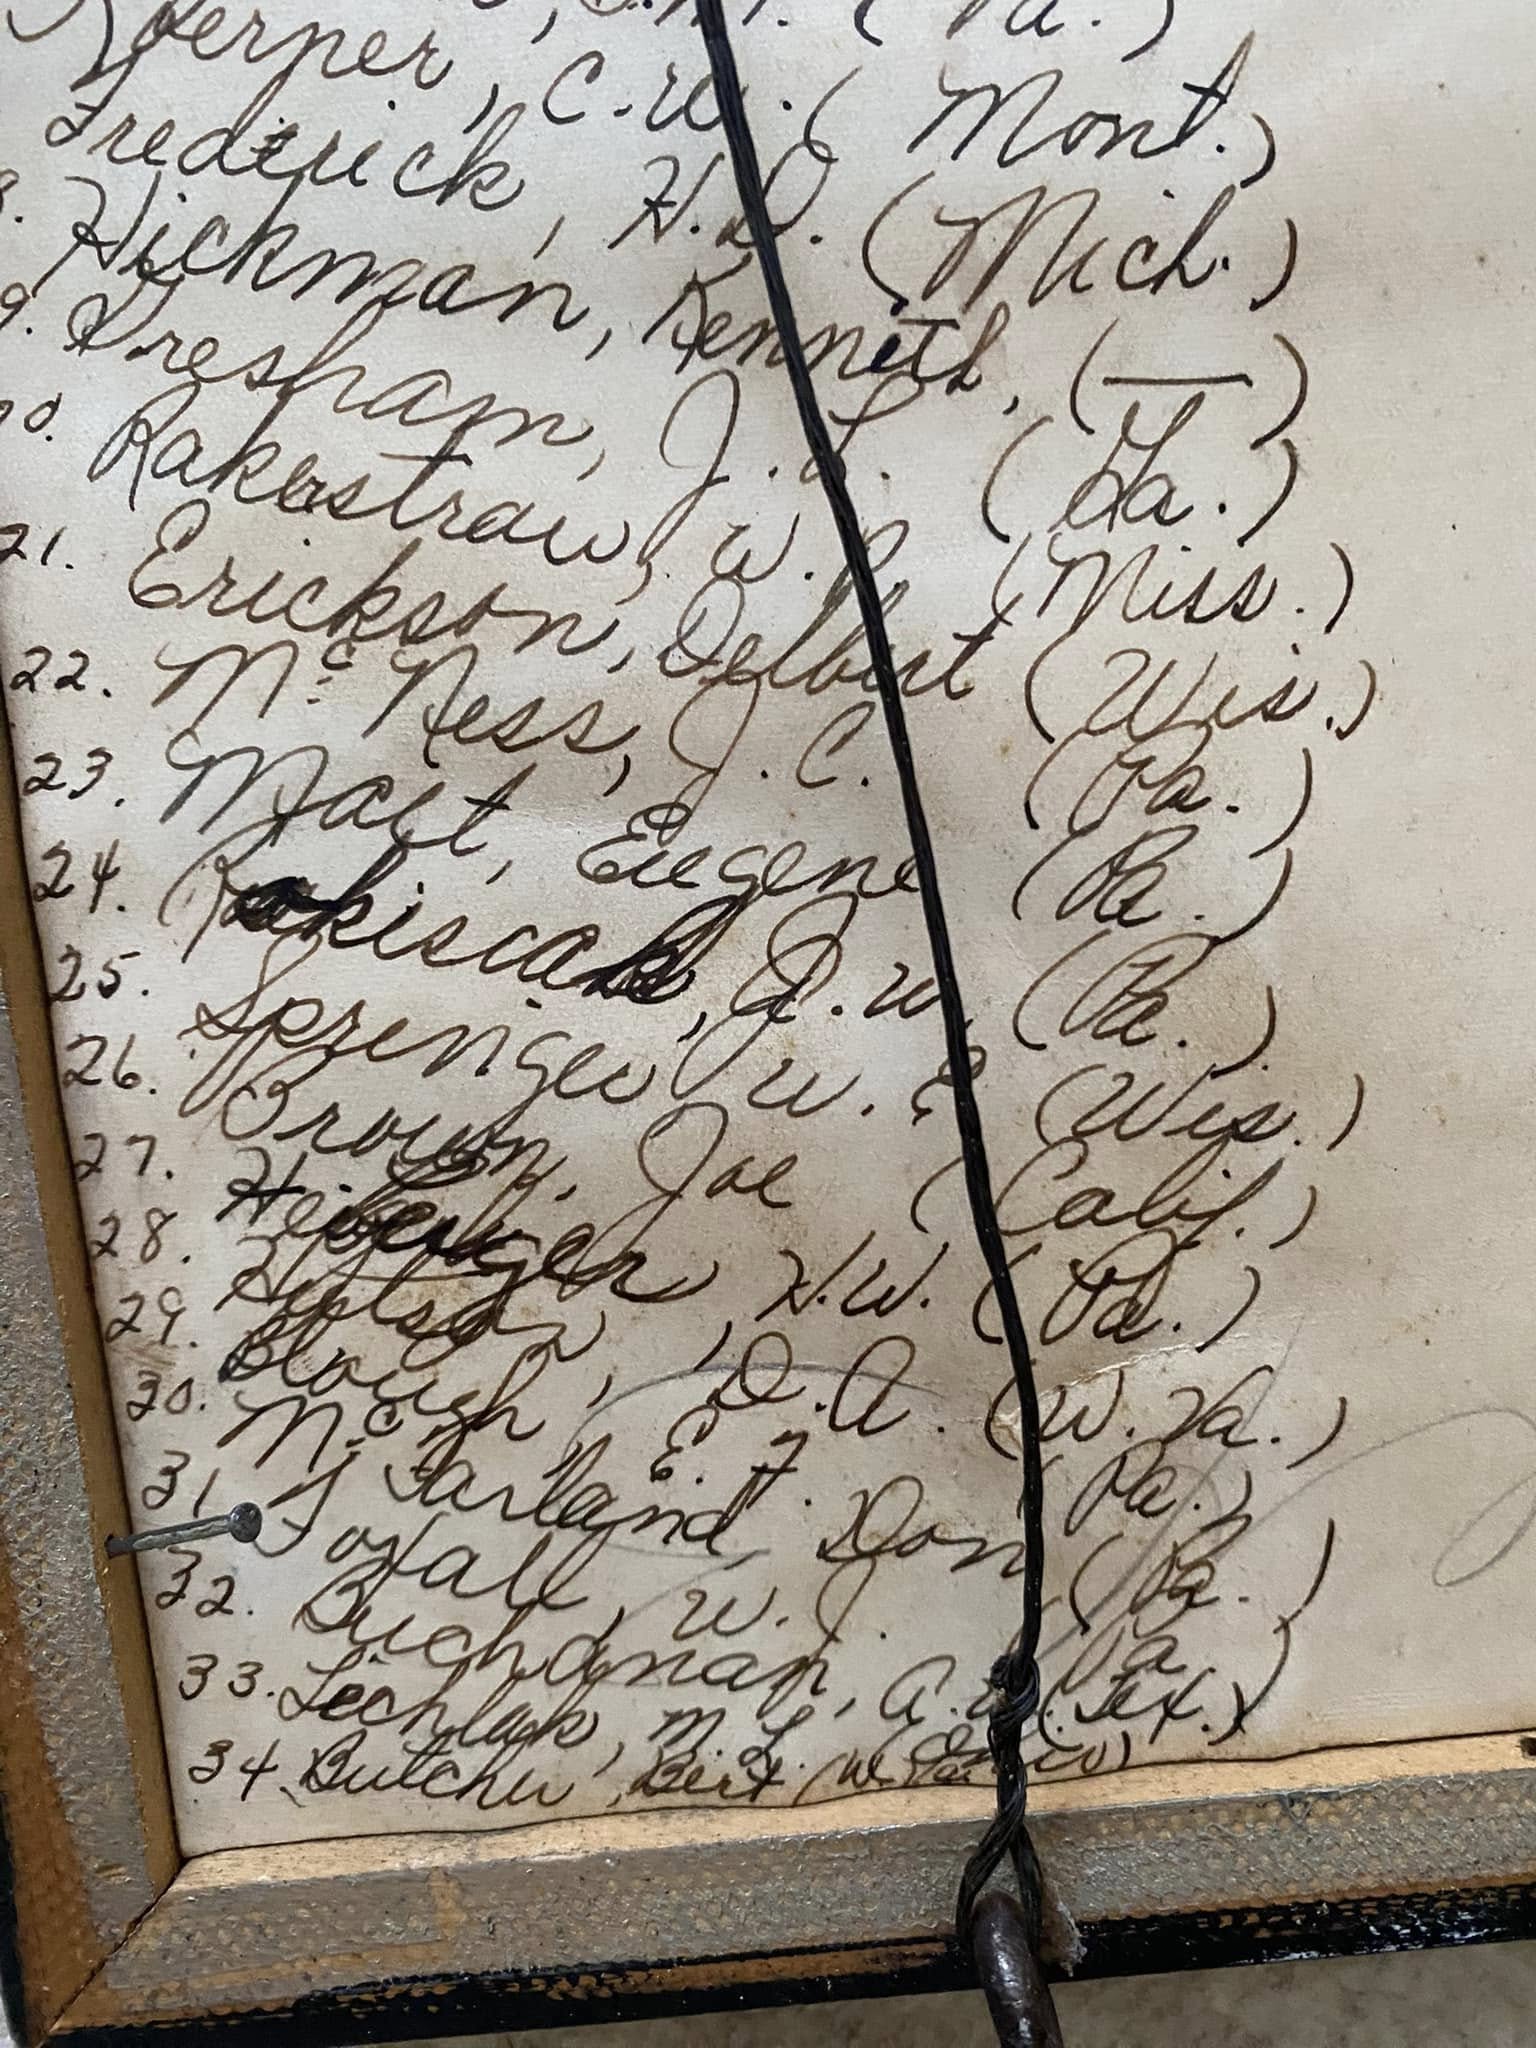 Koerner, C.W. (Mont.)
Frederick, H.D. (Mich.)
8. Hickman, Kenneth, (—)
9. Gresham, J.L. (Ga.)
20. Rakestraw, W.P. (Miss.)
21. Erickson, Delbert (Wis.)
22. Mc Ness, J.C. (Pa.)
23. Mait, Eugene (Pa.)
24. R.W. (Pa.)
25. Springer W.E. (Wis.)
26. Brown, Joe (Calif.)
27. H.W. (Pa.)
28. Hutson, D.A. (W. Va.)
29. Blough, E.F. (Pa.)
30. Mc Farland, Don (Pa.)
31 W.J. (Pa.)
32. Buchanan, A. (Tex.)
33. M.L.
34. Butcher, Bert (W.